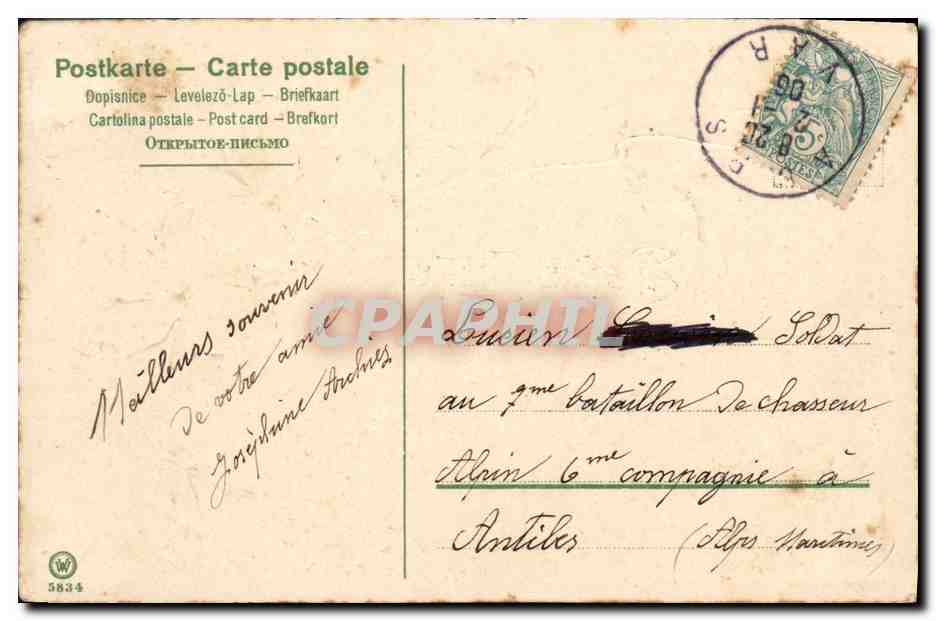 Postkarte – Carte postale
Dopisnice – Levelező-Lap – Briefkaart
Cartolina postale – Post card – Brefkort
Открытое-письмо
8 20
2
06
VAR
5
POSTES
CPAPHIL
Meilleurs souvenir
de votre amie
Joséphine
Lucien Soldat
au 7me bataillon de chasseur
Alpin 6me compagnie à
Antibes (Alps Maritimes)
W
5834